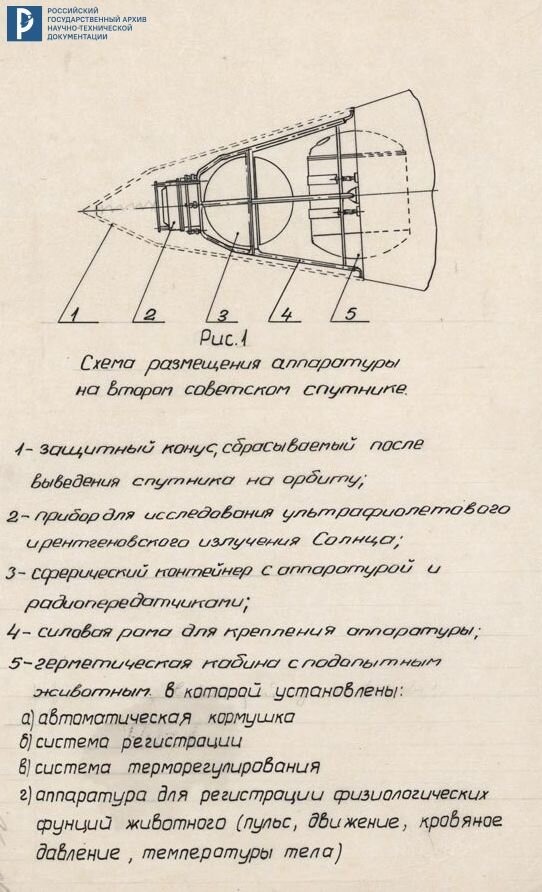 РОССИЙСКИЙ
ГОСУДАРСТВЕННЫЙ АРХИВ
НАУЧНО-ТЕХНИЧЕСКОЙ
ДОКУМЕНТАЦИИ
1 2 3 4 5
Рис.1
Схема размещения аппаратуры
на втором советском спутнике.
1- защитный конус, сбрасываемый после
выведения спутника на орбиту;
2- прибор для исследования ультрафиолетового
и рентгеновского излучения Солнца;
3- сферический контейнер с аппаратурой и
радиопередатчиками;
4- силовая рама для крепления аппаратуры;
5- герметическая кабина с подопытным
животным. в которой установлены:
а) автоматическая кормушка
б) система регистрации
в) система терморегулирования
г) аппаратура для регистрации физиологических
фунций животного (пульс, движение, кровяное
давление, температуры тела)